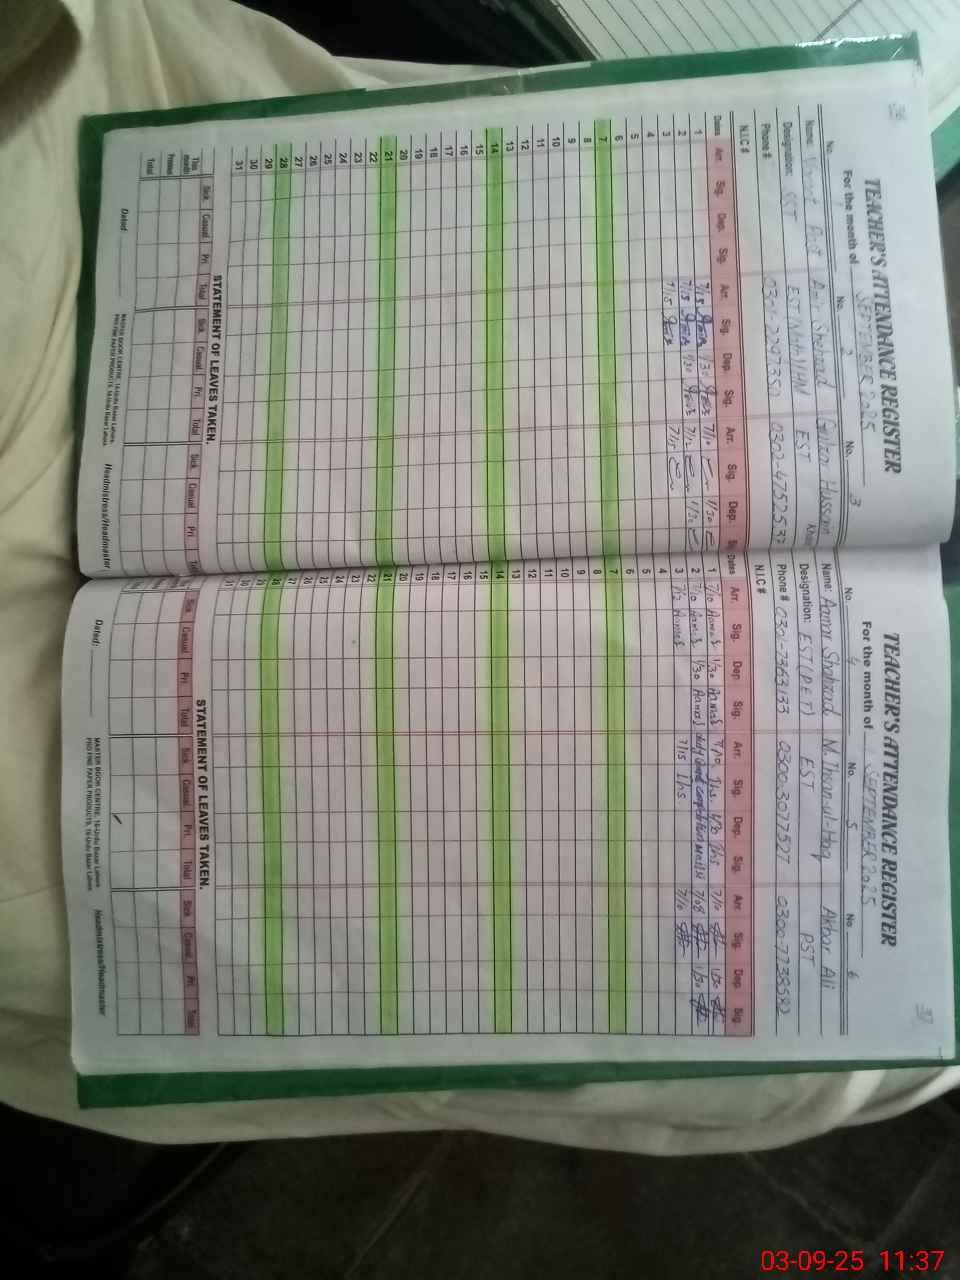 36
TEACHER'S ATTENDANCE REGISTER
For the month of SEPTEMBER 2025
No. 1 No. 2 No. 3
Name: Vacant Post Amir Shahzad Gulzar Hussain
Designation: SST EST EST
Phone # 0301-2297350 0302-4752537
N.I.C #
Dates Arr. Sig. Dep. Sig. Arr. Sig. Dep. Sig. Arr. Sig. Dep. Sig
1 7/15 1/30 7/10 1/30
2 7/15 1/30 7/12 1/30
3 7/15 7/15
4
5
6
7
8
9
10
11
12
13
14
15
16
17
18
19
20
21
22
23
24
25
26
27
28
29
30
31
STATEMENT OF LEAVES TAKEN.
Sick Casual Pri. Total Sick Casual Pri. Total Sick Casual Pri Total
This month
Previous
Total
Dated:
MASTER BOOK CENTRE, 16-Urdu Bazar Lahore.
PRO FINE PAPER PRODUCTS, 16-Urdu Bazar Lahore
Headmistress/Headmaster
37
TEACHER'S ATTENDANCE REGISTER
For the month of SEPTEMBER 2025
No. 4 No. 5 No. 6
Name: Aamar Shahzad M. Ihsan-ul-Haq Akbar Ali
Designation: EST(PET) EST PST
Phone # 0301-7363133 0300-3077527 0300-7738582
N.I.C #
Dates Arr. Sig. Dep. Sig. Arr. Sig. Dep. Sig. Arr. Sig. Dep. Sig
1 7/10 1/30 7/10 Ihs 1/30 Ihs 7/10 1/30
2 7/10 1/30 7/08 1/30
3 7/12 7/15 Ihs 7/10
4
5
6
7
8
9
10
11
12
13
14
15
16
17
18
19
20
21
22
23
24
25
26
27
28
29
30
31
STATEMENT OF LEAVES TAKEN.
Sick Casual Pri. Total Sick Casual Pri. Total Sick Casual Pri. Total
Dated:
MASTER BOOK CENTRE, 16-Urdu Bazar Lahore
PRO FINE PAPER PRODUCTS, 16-Urdu Bazar Lahore
Headmistress/Headmaster
03-09-25 11:37